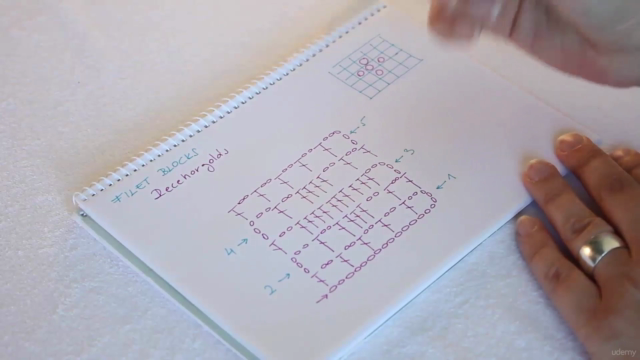 FILET BLOCKS
Decehorgolds
5
3
1
4
2
udemy